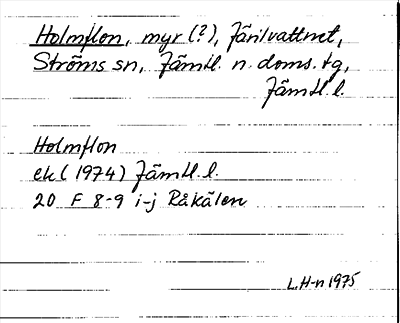 Holmflon, myr (?), Järilvattnet,
Ströms sn, Jämtl. n. doms. tg,
Jämtl.l.
Holmflon
ek (1974) Jämtl.l.
20 F 8-9 i-j Råkälen
L.H-n 1975